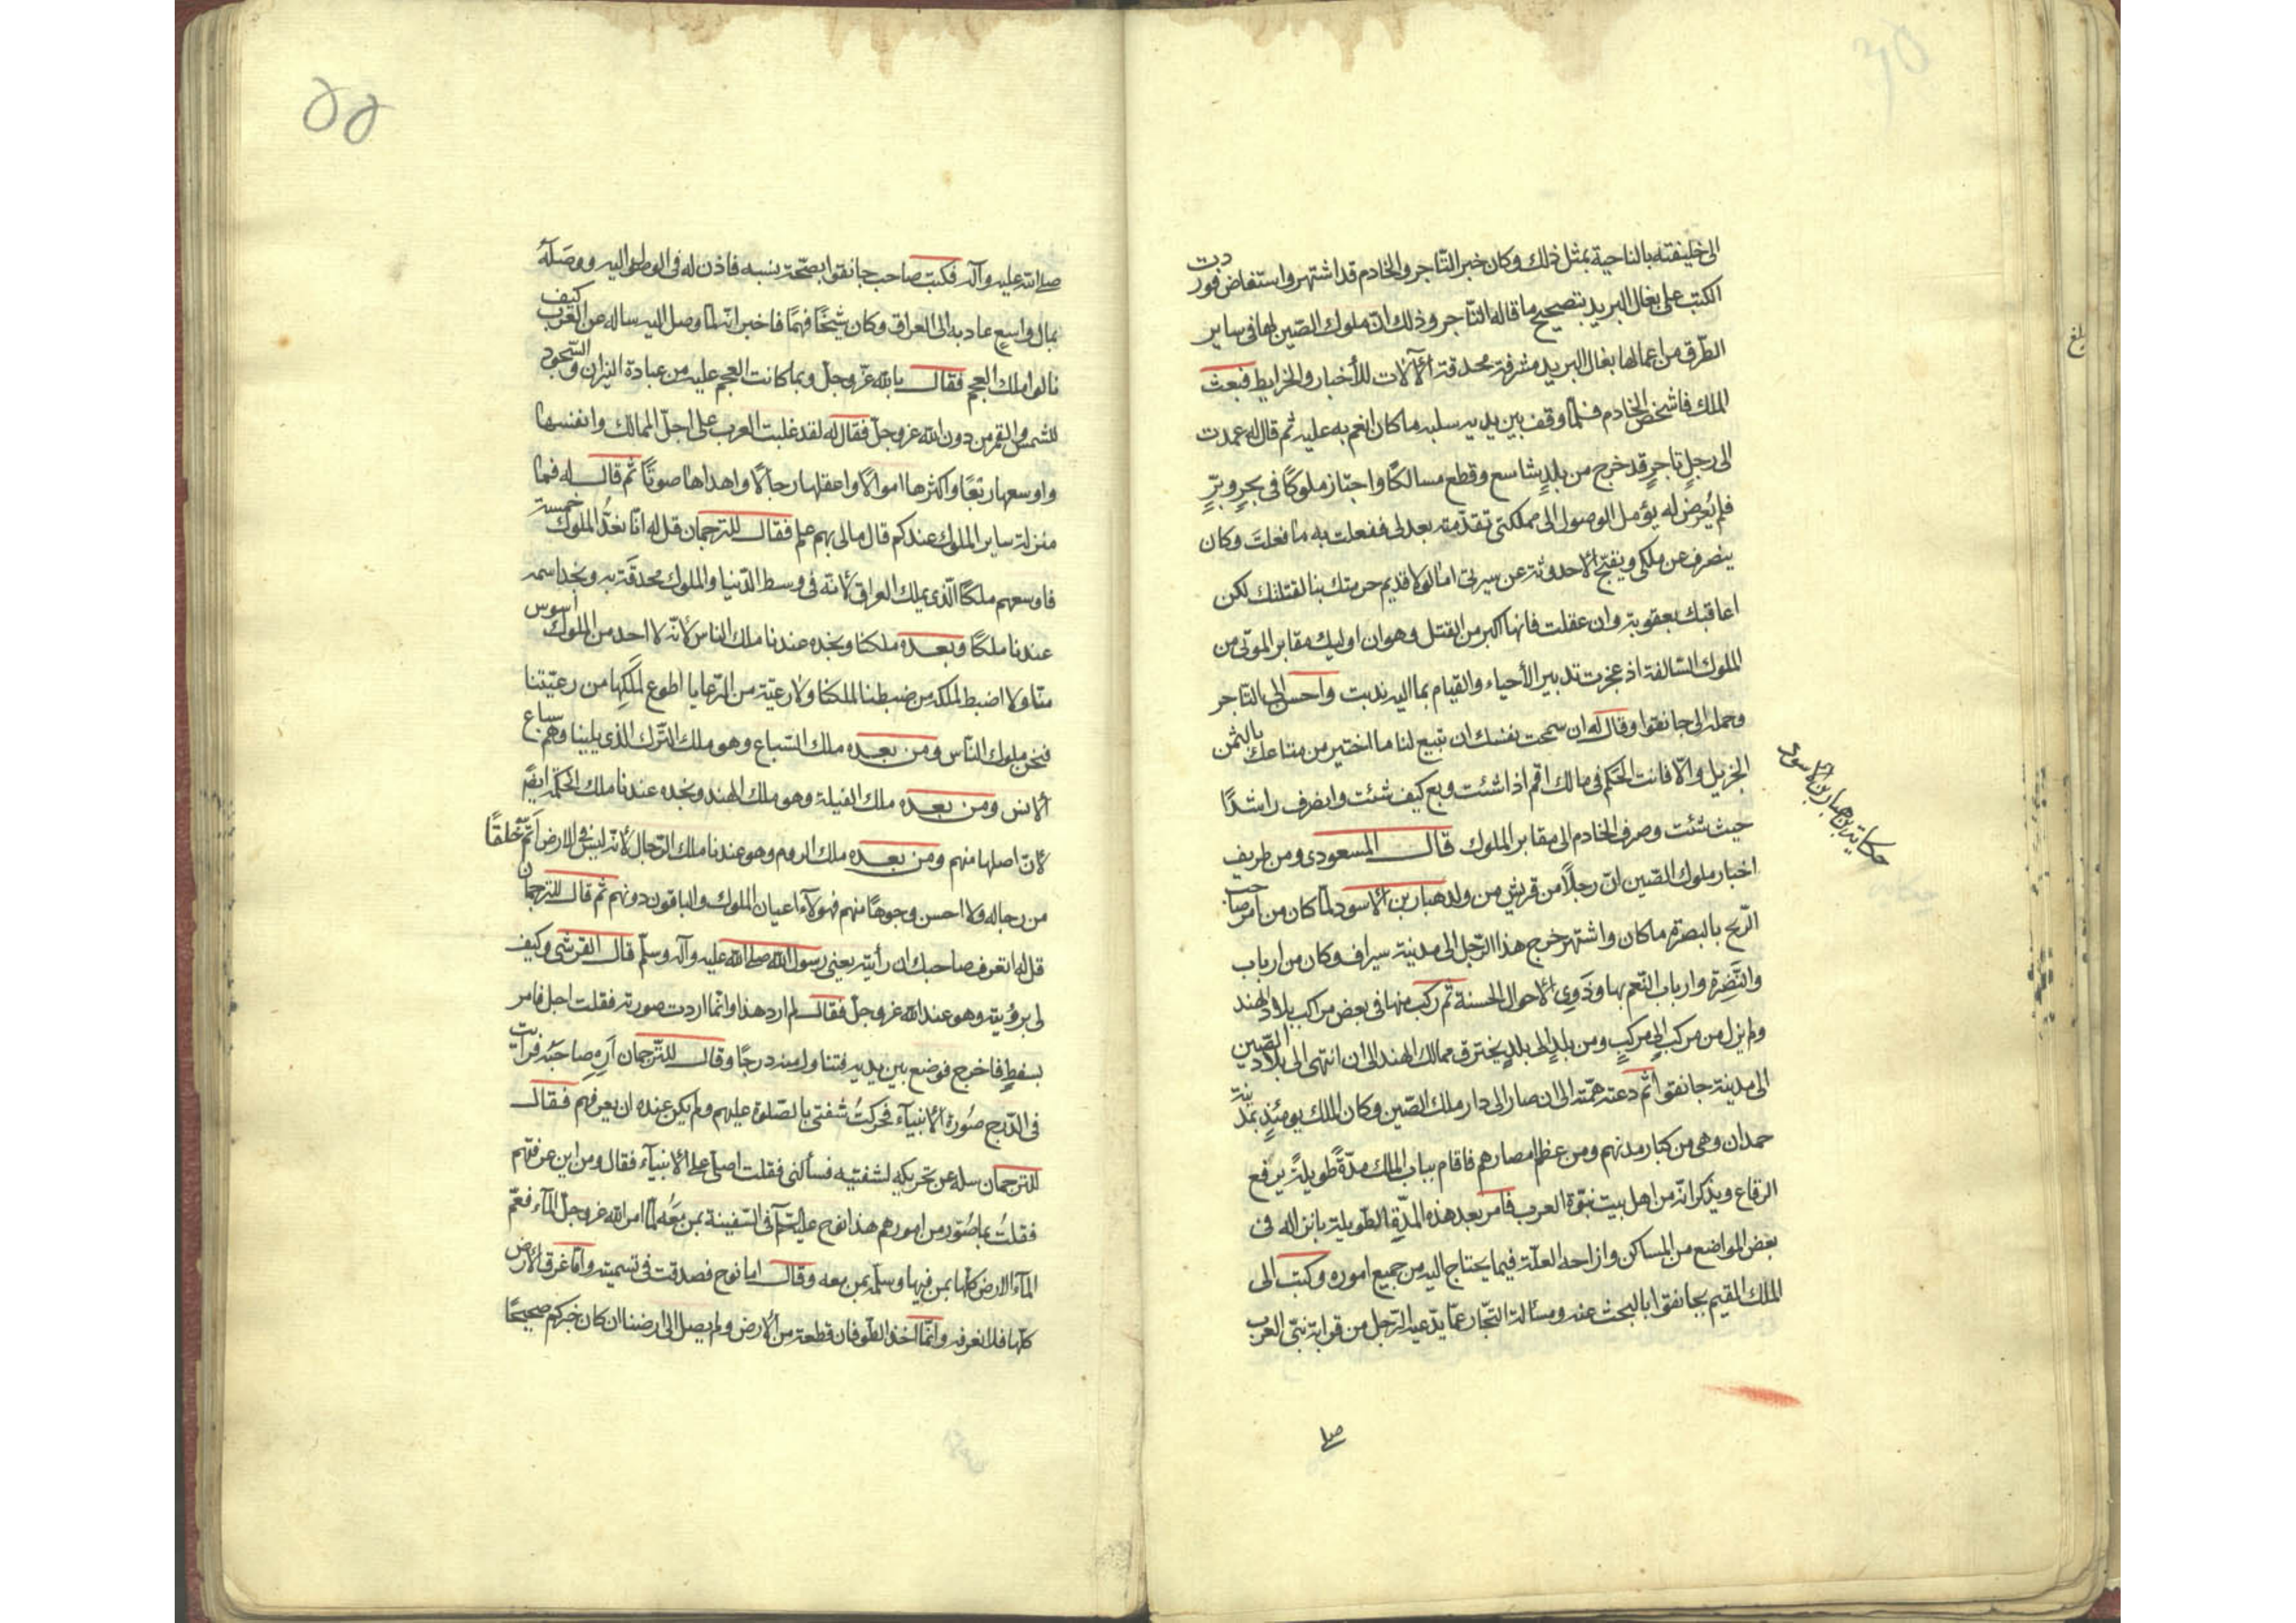 الى خليفته بالناحية بمثل ذلك وكان خبر التاجر والخادم قد اشتهر واستفاض فوردت
الكتب على بغال البريد بتصحيح ما قاله التاجر وذلك ان ملوك الصين لها فى ساير
الطرق من اعمالها بغال البريد مشرفة محدقة الآلات للأخبار والخرايط فبعث
الملك فاشخص الخادم فلما وقف بين يديه سلبه ما كان انعم به عليه ثم قال له عمدت
الى رجلٍ تاجرٍ قد خرج من بلدٍ شاسع وقطع مسالكًا واجتاز ملوكًا فى بحرٍ وبرٍّ
فلم يُعرض له يؤمل الوصول الى مملكتى تقدمته بعدلى ففعلت به ما فعلتَ وكان
ينصرف عن ملكى ويقبح الاحدوثة عن سيرتى اما لولا قديم حرمتك بنا لقتلتك لكن
اعاقبك بعقوبة وان عقلت فانها اكبر من القتل وهو ان اوليك مقابر الموتى من
الملوك السالفة اذ عجزت تدبير الأحياء والقيام بما اليه ندبت واحسن الى التاجر
وحمله الى خانقوا وقال له ان سمحت نفسك ان تبيع لنا ما اختير من متاعك بالثمن
الجزيل والا فانت المحكم فى مالك اقم اذا شئت وبع كيف شئت وانصرف راشدًا
حيث شئت وصرف الخادم الى مقابر الملوك قال المسعودى ومن طريف
اخبار ملوك الصين ان رجلًا من قريش من ولد هبار بن الاسود لما كان من امر صاحب
الزنج بالبصرة ما كان واشتهر خرج هذا الرجل الى مدينة سيراف وكان من ارباب
والنَّضِرَة وارباب النعم بها وذَوِى الاحوال الحسنة ثم ركب منها فى بعض مراكب بلاد الهند
ولم يزل من مركب الى مركبٍ ومن بلدٍ الى بلدٍ يخترق ممالك الهند الى ان انتهى الى بلاد الصين
الى مدينة خانقوا ثم دعته همته الى ان صار الى دار ملك الصين وكان الملك يومئذٍ بمدينة
حمدان وهى من كبار مدنهم ومن عظم امصارهم فاقام بباب الملك مدّةً طويلةً يرفع
الرقاع ويذكر انه من اهل بيت نبوّة العرب فامر بعد هذه المدّة الطويلة بانزاله فى
بعض المواضع من المساكن وازاحه العلّة فيما يحتاج اليه من جميع اموره وكتب الى
الملك المقيم بخانقوا بالبحث عنه ومسألة التجار عما يدعيه الرجل من قرابة نبى العرب
حكاية بن هبار بن الاسود
صلى
صلى الله عليه وآله فكتب صاحب خانقوا بصحّة نسبه فاذن له فى الوصول اليه ووصله
بمال واسعٍ عاد به الى العراق وكان شيخًا فهمًا فاخبر انه لما وصل اليه ساله عن العرب كيف
نالوا ملك العجم فقال بالله عزّ وجلّ وبما كانت العجم عليه من عبادة النيران والسجود
للشمس والقمر من دون الله عز وجلّ فقال له لقد غلبت العرب على اجلّ الممالك وانفسها
واوسعها ربعًا واكثرها اموالًا واعقلها رجالًا واهداها صوتًا ثم قال له فما
منزلة ساير الملوك عندكم قال مالى بهم علم فقال للترجمان قل له انا نعُدُّ الملوك خمسة
فاوسعهم ملكًا الّذى يملك العراق لانّه فى وسط الدّنيا والملوك محدقة به ونجد اسمه
عندنا ملكًا وبعده ملكنا ونجده عندنا ملك الناس لأنّه لا احد من الملوك اسوس
منّا ولا اضبط لملكه من ضبطنا لملكنا ولا رعيّة من الرّعايا اطوع لملكها من رعيّتنا
فنحن ملوك الناس ومن بعده ملك السباع وهو ملك التّرك الذى يلينا وهم سباع
الانس ومن بعده ملك الفيلة وهو ملك الهند ونجده عندنا ملك الحكمة ايضًا
لانّ اصلها منهم ومن بعده ملك الروم وهو عندنا ملك الرّجال لأنّه ليس فى الارض اتمّ خلقًا
من رجاله ولا احسن وجوهًا منهم فهولآء اعيان الملوك والباقون دونهم ثم قال للترجمان
قل له اتعرف صاحبك ان رأيته يعنى رسول الله صلى الله عليه وآله وسلّم قال القرشى وكيف
لى برؤيته وهو عند الله عز وجلّ فقال لم ارد هذا وانّما اردت صورته فقلت اجل فامر
بسفطٍ فاخرج فوضع بين يديه فتناول منه درجًا وقال للترجمان اَرِهِ صاحبَه فرايت
فى الدّرج صُورة الانبيآء فحركتُ شفتى بالصّلوة عليهم ولم يكن عنده ان يعرفهم فقال
للترجمان سله عن تحريكه لشفتيه فسألنى فقلت اصلى على الانبيآء فقال ومن اين عرفتهم
فقلتُ بما صُوّر من امورهم هذا نوح عليه السلام فى السّفينة بمن معَه لمّا امر الله عز وجلّ المآء فعمّ
المآء الارض كلّها بمن فيها وسلّمه بمن معه وقال اما نوح فصدقت فى تسميته وامّا غرق الارض
كلّها فلا نعرفه وانّما اخذ الطّوفان قطعة من الأرض ولم يصل الى ارضنا ان كان خبركم صحيحًا